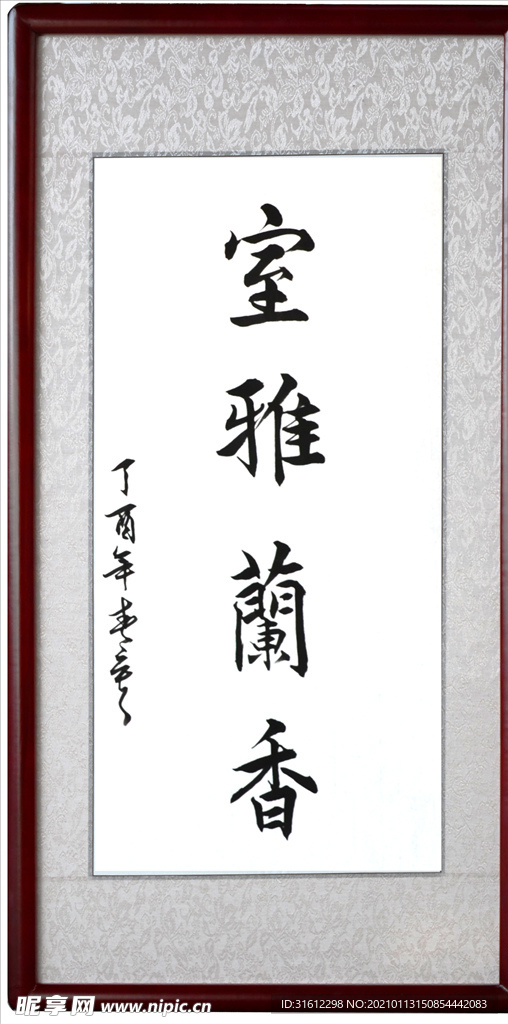 室雅蘭香
丁酉年春
昵享网 www.nipic.cn
ID:31612298 NO:20210113150854442083